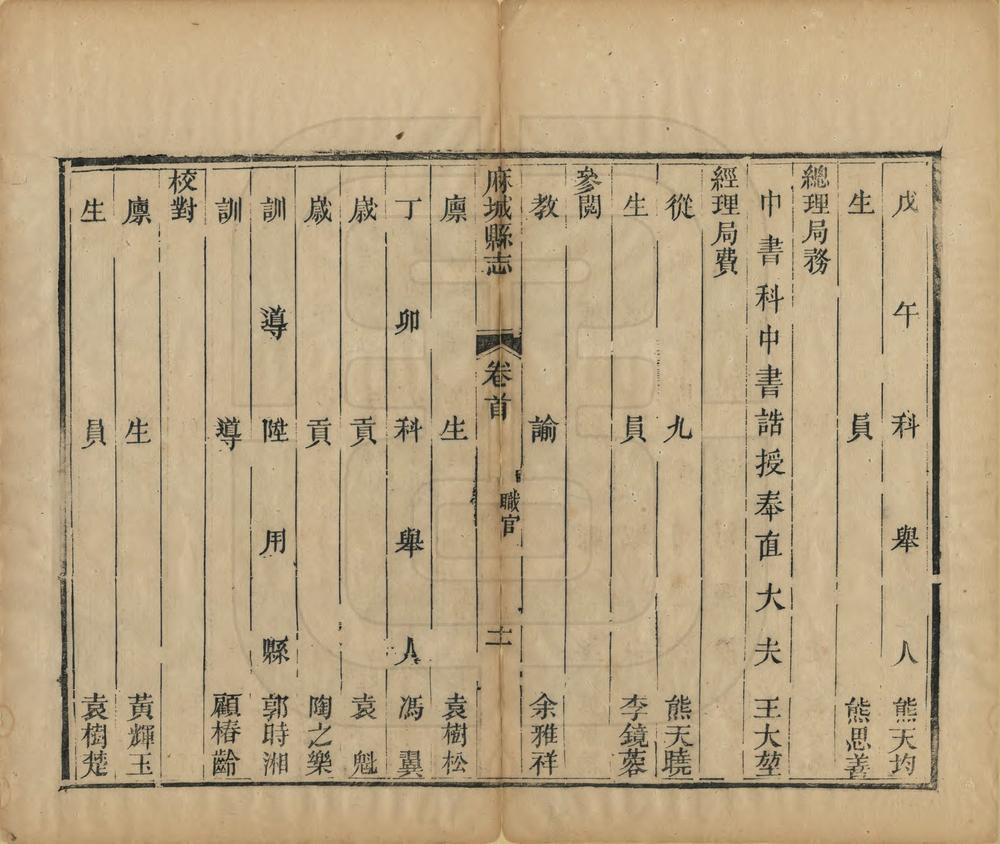 戊午科舉人熊天均
生員熊思善
總理局務
中書科中書誥授奉直大夫王大堃
經理局費
從九熊天曉
生員李鏡蓉
參閱
教諭余雅祥
麻城縣志
卷首
職官
廪生袁樹松
丁卯科舉人馮翼
歲貢袁魁
歲貢陶之樂
訓導陞用縣郭時湘
訓導顧椿齡
校對
廪生黃輝玉
生員袁樹楚